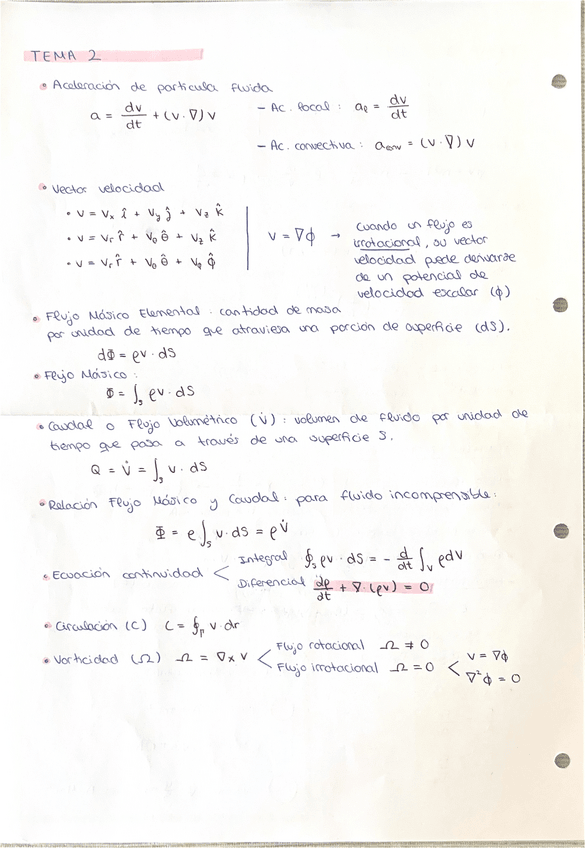 TEMA 2
• Aceleración de partícula fluida
a = dv/dt + (v · ∇) v
– Ac. local : aₗ = dv/dt
– Ac. convectiva : a_conv = (v · ∇) v
• Vector velocidad
• v = vₓ î + v_y ĵ + v_z k̂
• v = v_r r̂ + v_θ θ̂ + v_z k̂
• v = v_r r̂ + v_θ θ̂ + v_φ φ̂
v = ∇ϕ → Cuando un flujo es
irrotacional, su vector
velocidad puede derivarse
de un potencial de
velocidad escalar (ϕ)
• Flujo Másico Elemental · cantidad de masa
por unidad de tiempo que atraviesa una porción de superficie (dS).
dΦ = ρv · dS
• Flujo Másico :
Φ = ∫ₛ ρv · dS
• Caudal o Flujo Volumétrico (V̇) : volumen de fluido por unidad de
tiempo que pasa a través de una superficie S.
Q = V̇ = ∫ₛ v · dS
• Relación Flujo Másico y Caudal : para fluido incomprensible:
Φ = ρ ∫ₛ v · dS = ρ V̇
• Ecuación continuidad < Integral ∮ₛ ρv · dS = – d/dt ∫_V ρdV
Diferencial dρ/dt + ∇·(ρv) = 0
• Circulación (C) C = ∮_Γ v · dr
• Vorticidad (Ω) Ω = ∇ x v < Flujo rotacional Ω ≠ 0
Flujo irrotacional Ω = 0 < v = ∇ϕ
∇²ϕ = 0